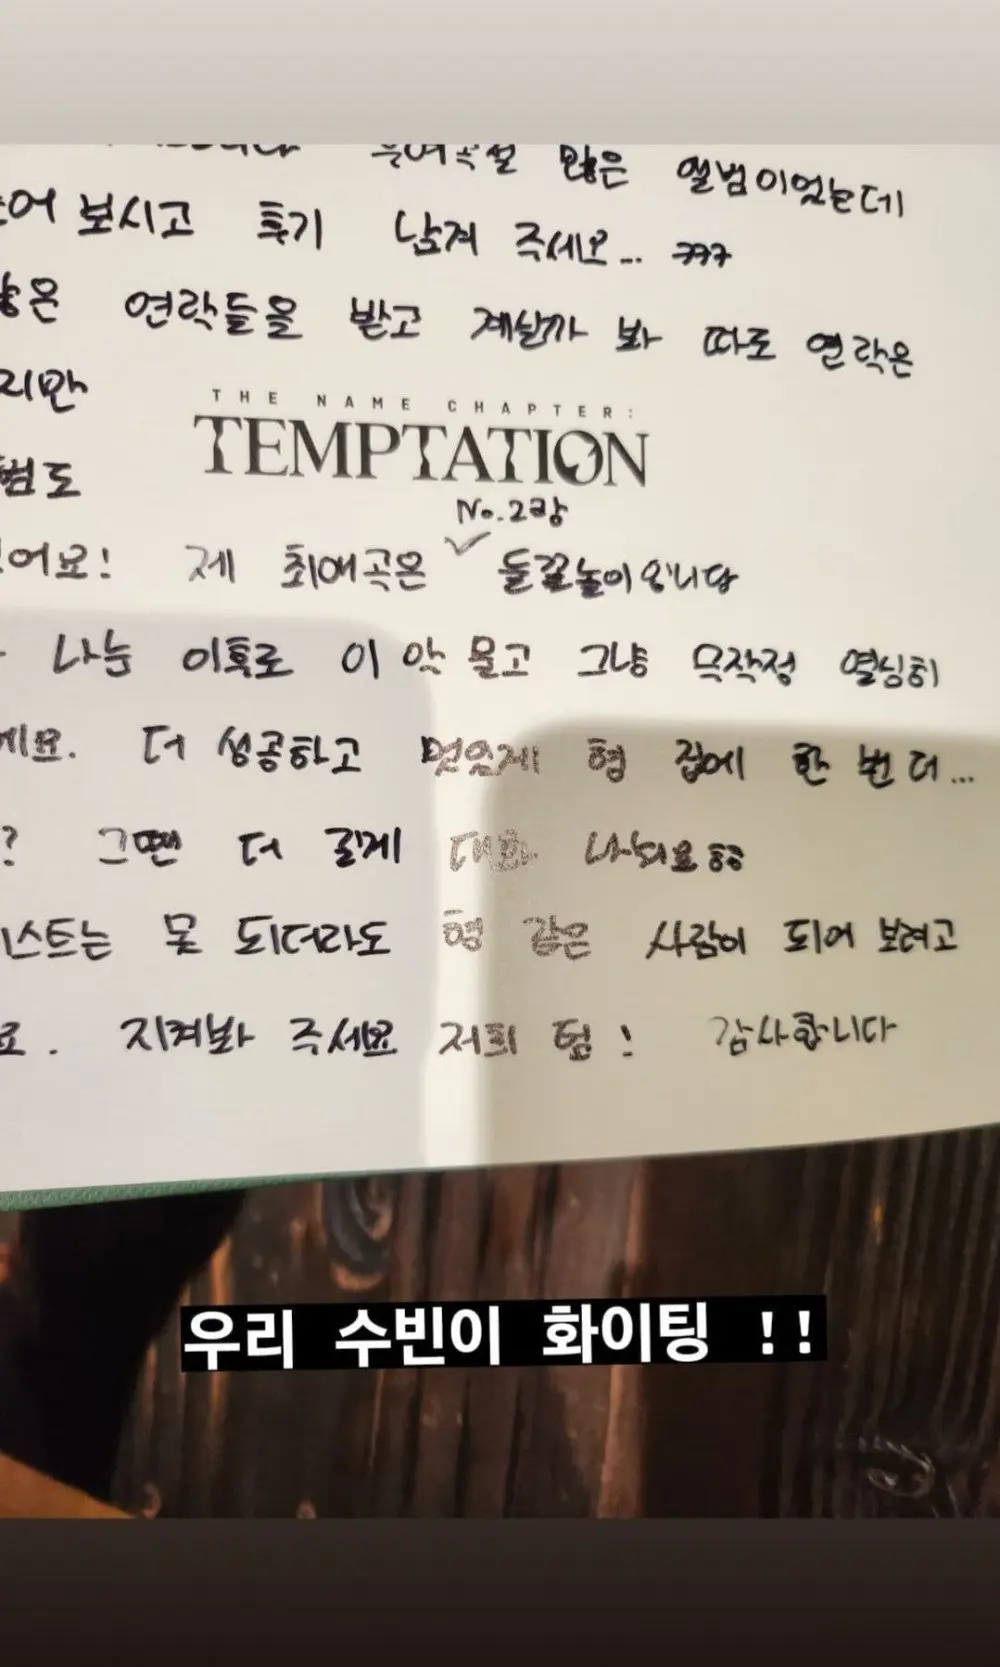 많은 앨범이었는데
보시고 후기 남겨 주세요... ㅋㅋㅋ
연락들을 받고 계실까 봐 따로 연락은
지만
THE NAME CHAPTER:
TEMPTATION
No.2랑
어요! 제 최애곡은 ✓ 둘꽃놀이입니다
나눈 이후로 이 악 물고 그냥 무작정 열심히
세요. 더 성공하고 멋있게 형 집에 한 번 더...
? 그땐 더 길게 대화 나눠요형
스트는 못 되더라도 형 같은 사람이 되어 보려고
요. 지켜봐 주세요 저희 텀! 감사합니다
우리 수빈이 화이팅 !!